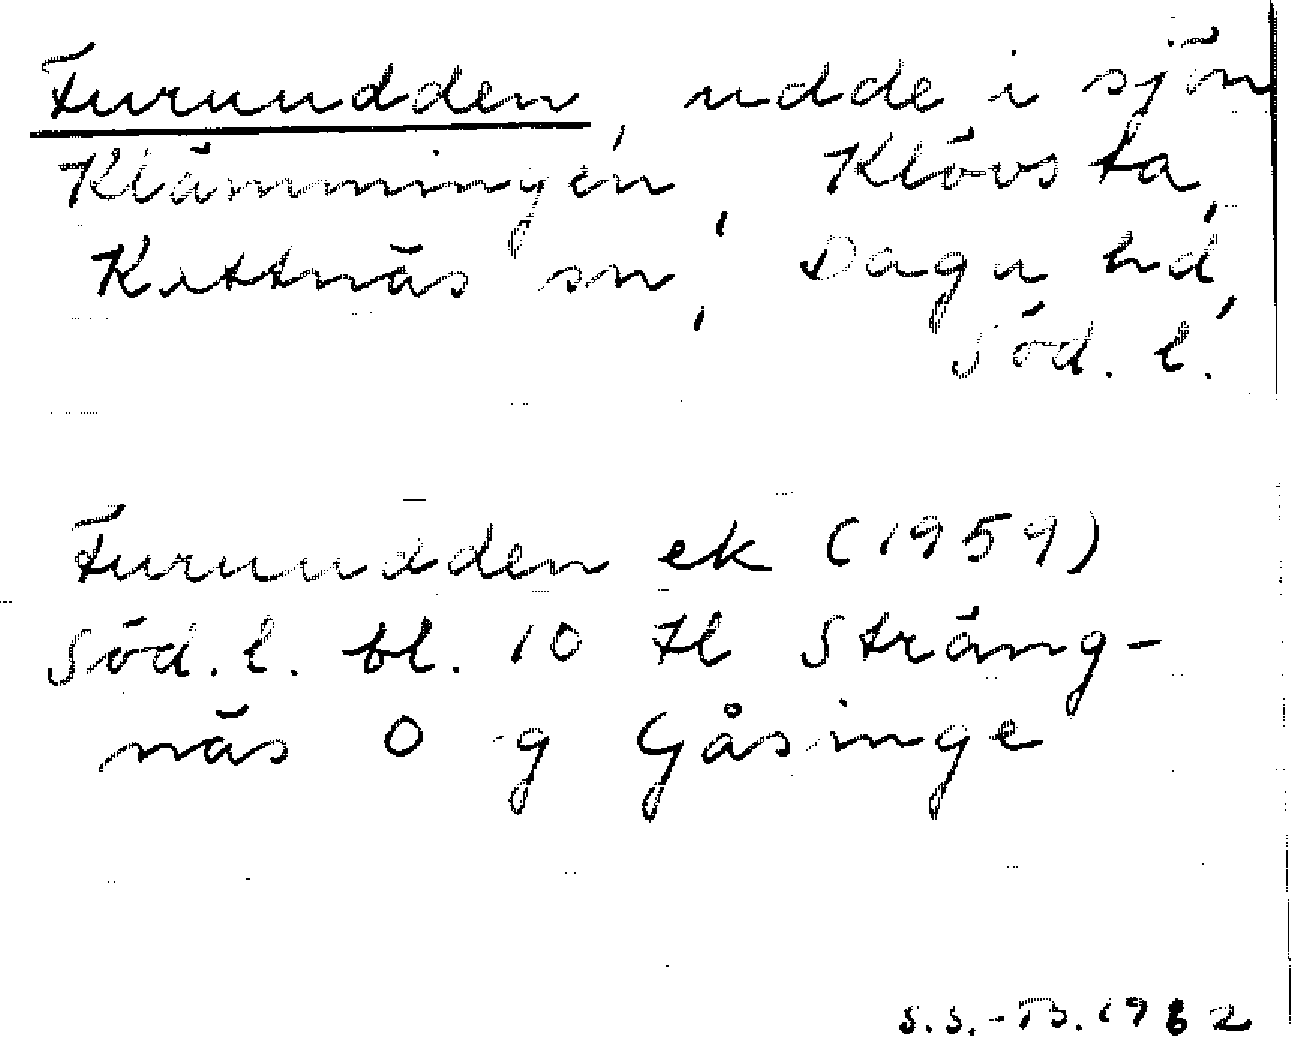 Furuudden, udde i sjön
Klämmingen, Klövsta,
Kattnäs sn, Daga hd,
Söd. l.
Furuudden ek (1959)
Söd. l. bl. 10 tl Sträng-
näs O g Gåsinge
S.S.-B. 1962